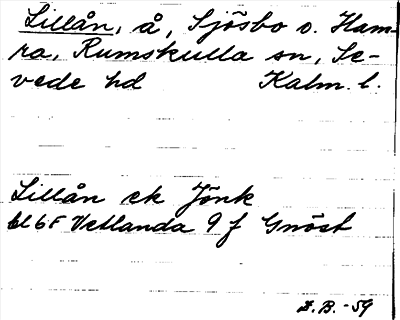 Lillån, å, Sjösbo o. Ham-
ra, Rumskulla sn, Se-
vede hd Kalm. l.
Lillån ek Jönk
bl 6F Vetlanda 9 f Gnöst
Z.B. -59